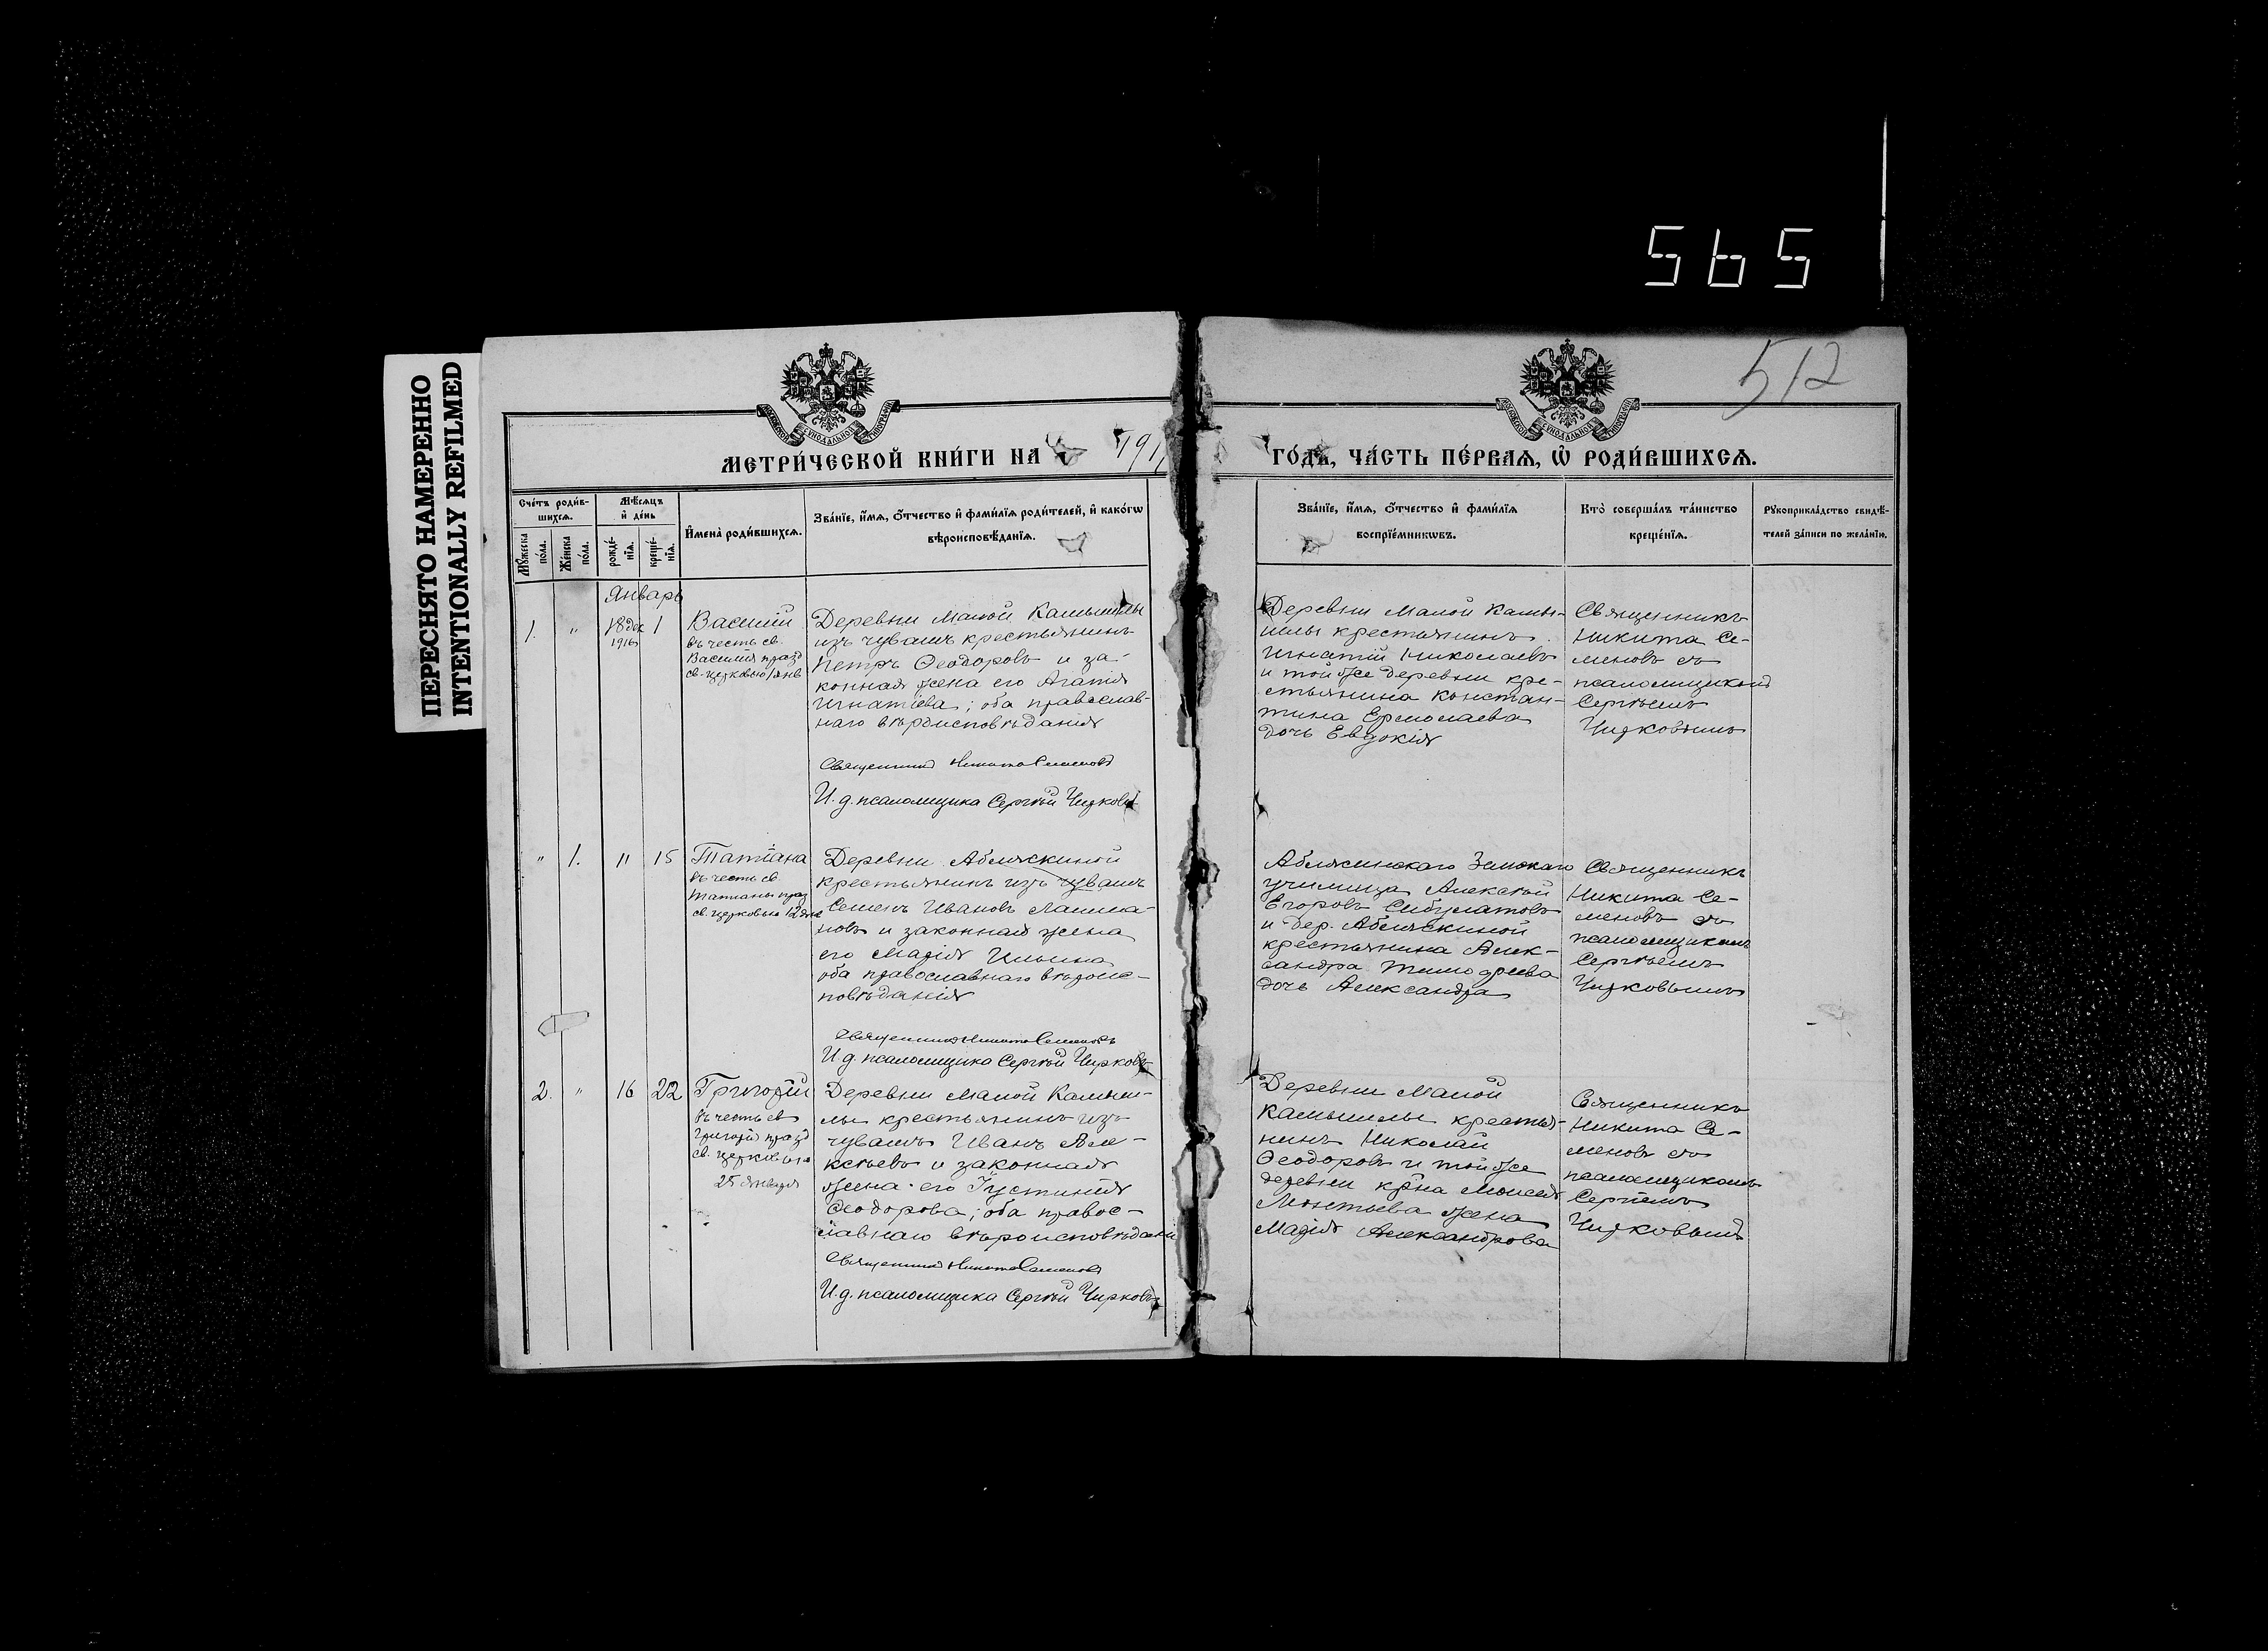 565
ПЕРЕСНЯТО НАМЕРЕННО
INTENTIONALLY REFILMED
512
МЕТРИ́ЧЕСКОЙ КНИ́ГИ НА 191
ГО́ДЪ, ЧА́СТЬ ПЕ́РВАЯ, Ѡ РОДИ́ВШИХСЯ.
Сче́тъ роди́в-
шихся.
Мꙋ́жеска по́ла.
Же́нска по́ла.
Мѣ́сяцъ и де́нь
рожде́-нїя.
креще́-нїя.
Имена̀ роди́вшихся.
Зва́нїе, и́мя, о́тчество и фами́лїя роди́телей, и како́гѡ
вѣроисповѣ́данїя.
Зва́нїе, и́мя, о́тчество и фами́лїя
воспрїе́мникѡвъ.
Кто̀ соверша́лъ та́инство
креще́нїя.
Рꙋкоприкла́дство свидѣ́-
телей за́писи по жела́нїю.
Январь
1. " 18 дек 1916 1
Василій
въ честь св.
Василія празд
св. церковью 1 янв.
Деревни Малой Камышлы
изъ чувашъ крестьянинъ
Петръ Ѳеодоровъ и за-
конная жена его Агапія
Игнатіева; оба православ-
наго вѣроисповѣданія
Священникъ Никита Семеновъ
И. д. псаломщика Сергѣй Чирковъ
Деревни Малой Камы-
шлы крестьянинъ
Игнатій Николаевъ
и той же деревни кре-
стьянина Констан-
тина Ермолаева
дочь Евдокія
Священникъ
Никита Се-
меновъ съ
псаломщикомъ
Сергѣемъ
Чирковымъ
" 1. 11 15
Татіана
въ честь св.
Татіаны праз
св. церковью 12 янв
Деревни Аблязкиной
крестьянинъ изъ чувашъ
Семенъ Ивановъ
и законная жена
его Марія Ильина
оба православнаго вѣроис-
повѣданія
Священникъ Никита Семеновъ
И д. псаломщика Сергѣй Чирковъ
Земскаго
училища Алексѣй
Егоровъ Сибулатовъ
и дер. Аблязкиной
крестьянина Алек-
сандра
дочь Александра
Священникъ
Никита Се-
меновъ съ
псаломщикомъ
Сергѣемъ
Чирковымъ
2. " 16 22
Григорій
въ честь св
Григорія празд
св. церковью
25 января
Деревни Малой Камыш-
лы крестьянинъ изъ
чувашъ Иванъ Але-
ксѣевъ и законная
жена его Іустинія
Ѳеодорова; оба правос-
лавнаго вѣроисповѣданія
Священникъ Никита Семеновъ
И. д. псаломщика Сергѣй Чирковъ
Деревни Малой
Камышлы крестья-
нинъ Николай
Ѳеодоровъ и той же
деревни кр-на Моисея
Леонтьева жена
Марія Александрова
Священникъ
Никита Се-
меновъ съ
псаломщикомъ
Сергѣемъ
Чирковымъ